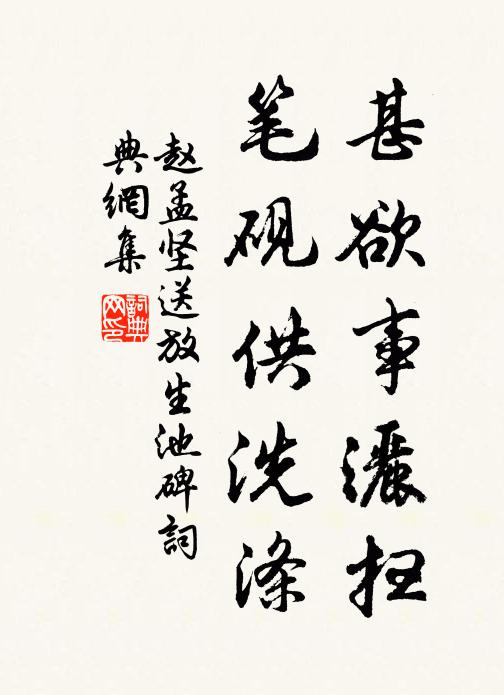 甚欲事灑扫
笔砚供洗涤
赵孟坚送放生池碑詞
典網集
詞典网印